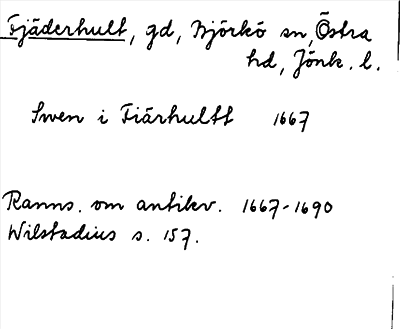 Fjäderhult, gd, Björkö sn, Östra
hd, Jönk. l.
Swen i Fiärhultt 1667
Ranns. om antikv. 1667-1690
Wilstadius s. 157.